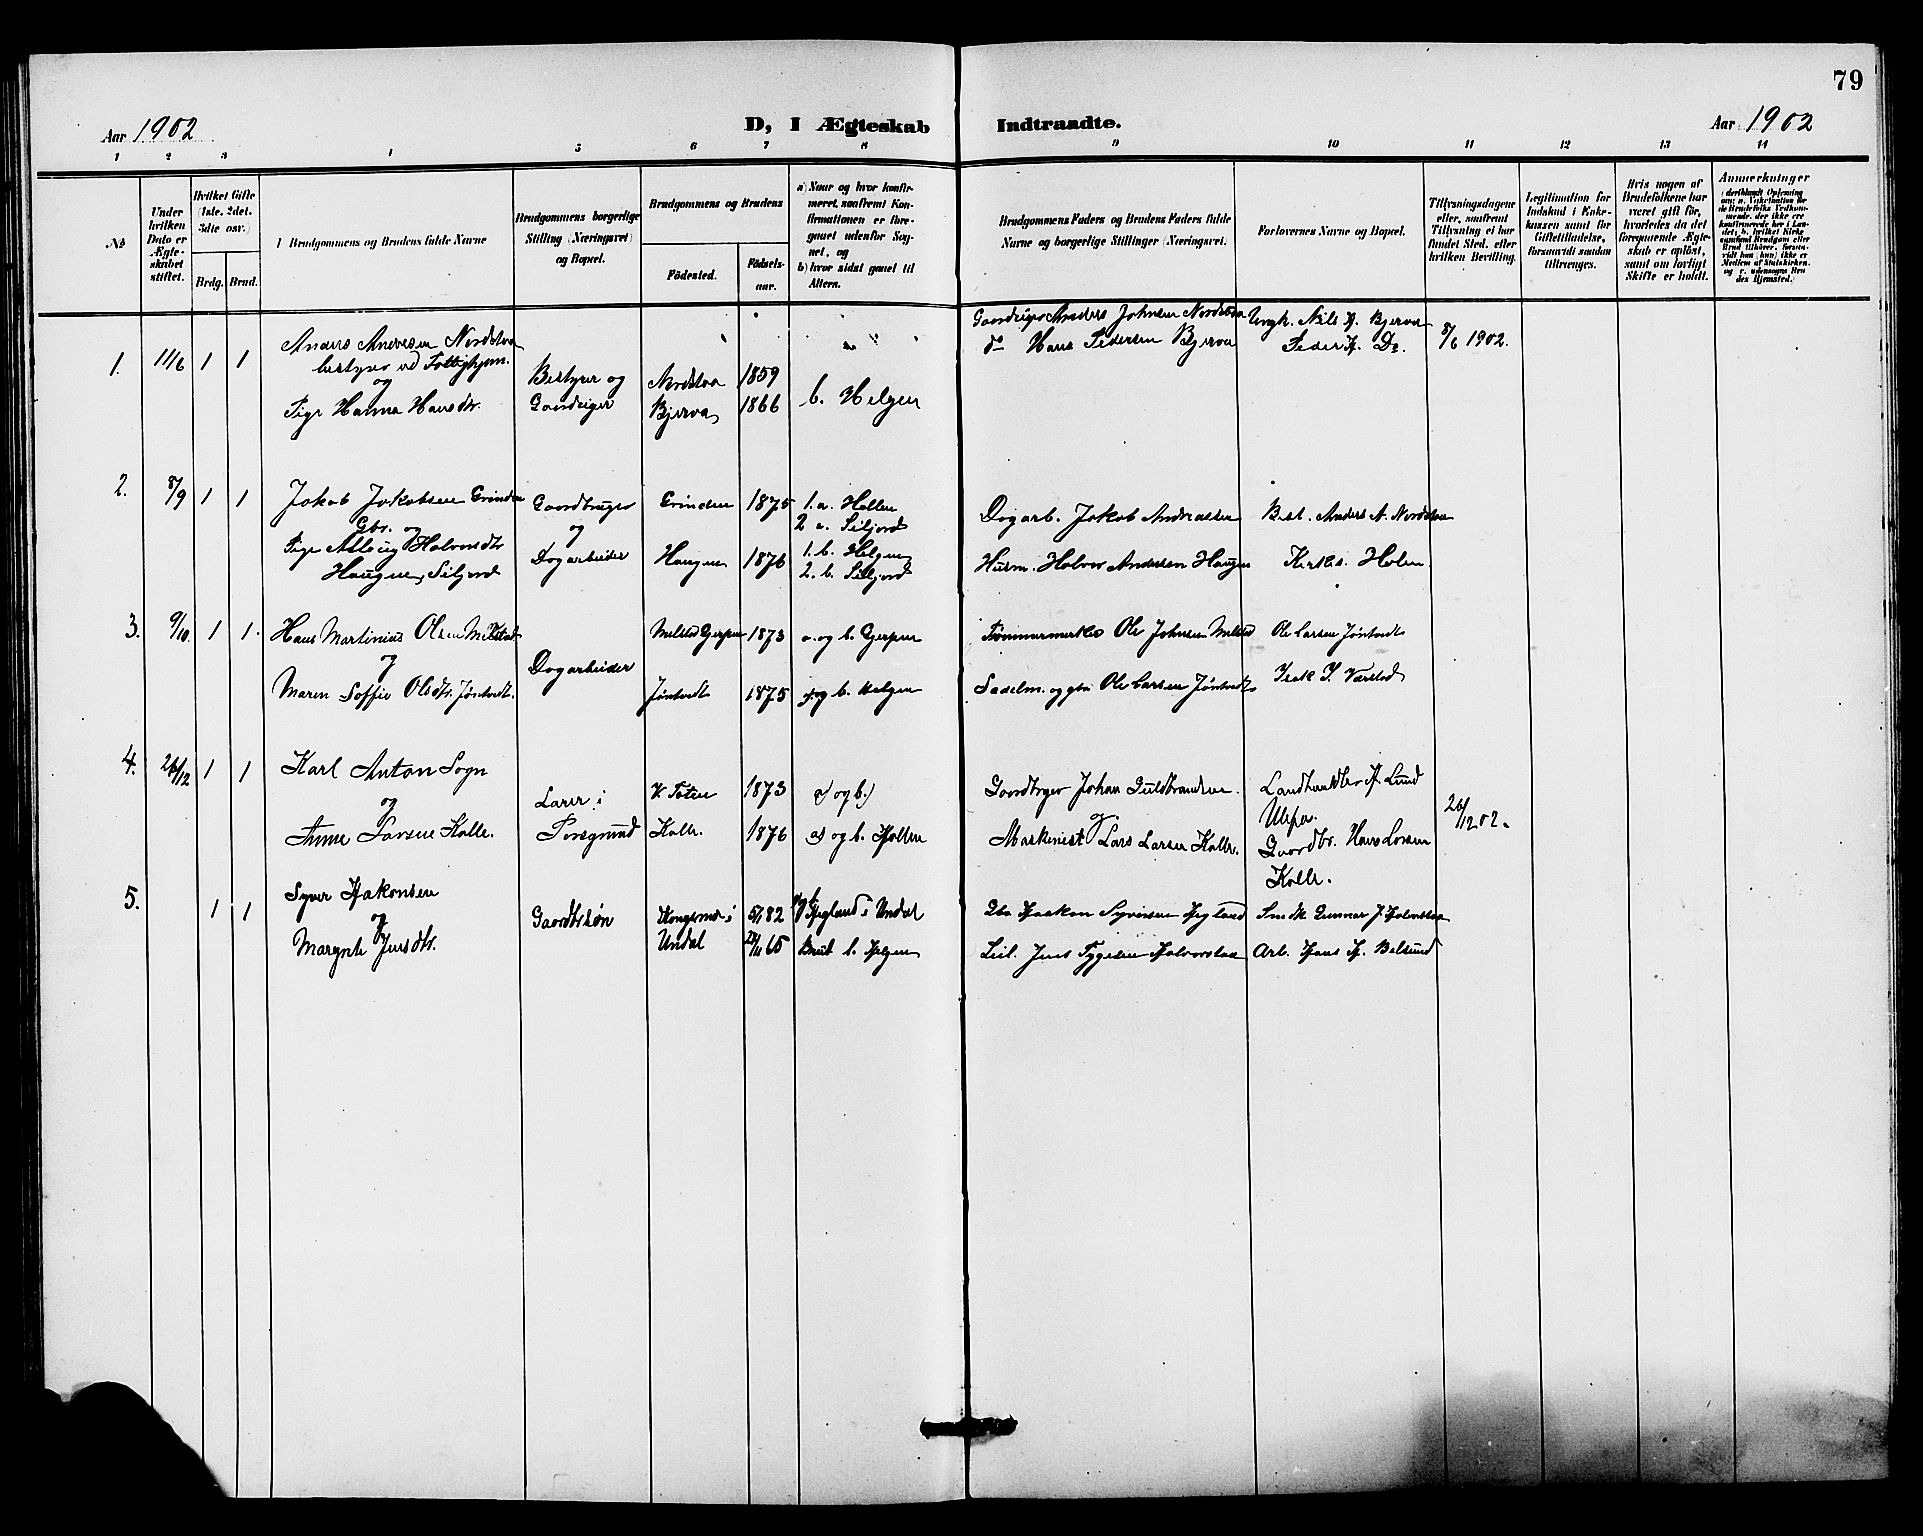 79
Aar 1902
D, I Ægteskab Indtraadte.
Aar 1902
1 2 3 4 5 6 7 8 9 10 11 12 13 14
No
Under hvilken Dato er Ægteskabet stiftet.
Hvilket Gifte (1ste, 2det, 3die osv.)
Brdg. Brud.
Brudgommens og Brudens fulde Navne
Brudgommens borgerlige Stilling (Næringsvei) og Bopæl.
Brudgommens og Brudens
Födested.
Födselsaar.
a) Naar og hvor konfirmeret, samfremt Konfirmationen er foregaaet udenfor Sognet, og
b) hvor sidst gaaet til Alters.
Brudgommens Faders og Brudens Faders fulde Navne og borgerlige Stillinger (Næringsvei).
Forlovernes Navne og Bopæl.
Tillysningsdagene eller, saafremt Tillysning ei har fundet Sted, efter hvilken Bevilling.
Legitimation for Indskud i Enkekassen samt for Giftetilladelse, forsaavidt saadan tiltrænges.
Hvis nogen af Brudefolkene har været gift før, hvorledes da det foregaaende Ægteskab er opløst, samt om lovligt Skifte er holdt.
Anmærkninger
1. 11/6 1 1
Anders Andersen Nordstaa
bestyrer ved Fattighjem.
og
Pige Hanna Hansdtr.
Bestyrer og
Gaardeiger
Nordstaa 1859
Bjerva 1866
b. Helgen
Gaardeiger Anders Johnsen Nordstaa
do Hans Pedersen Bjerva
Ungk. Nils H. Bjerva
Peder H. Do.
8/6 1902.
2. 8/9 1 1
Jakob Jakobsen Grinden
Gbr. og
Pige Halvorsdtr
Haugen, Siljord
Gaardbruger
og
Dagarbeider
Grinden 1875
Haugen 1876
1. a. Hollen
2 a. Siljord
1. b. Helgen
2. b. Siljord
Dagarb. Jakob Andreassen
Husm. Halvor Andersen Haugen
Best. Anders A. Nordstaa
Kirkes. Holen
3. 9/10 1 1
Hans Martinius Olsen Melstad
og
Maren Soffie Olsdtr. Jøntvedt.
Dagarbeider
Melsted Gjerpen 1873
Jøntvedt 1875
a. og b. Gjerpen
og b. Helgen
Tømmermerker Ole Johnsen Melsted
Sadelm. og gbr Ole Larsen Jøntvedt
Ole Larsen Jøntvedt
Isak I. Værstad
4. 26/12 1 1
Karl Anton Sogn
og
Anne Larsen Kolle.
Lærer i
Porsgrund
V. Toten 1873
Kolle. 1876
a) og b.)
a) og b. Hollen
Gaardbrger Johan Guldbrandsen.
og
Maskinist Lars Larsen Kolle.
Landhandler H. Lund
Ulefos.
Gaardbr. Hans Larsen
Kolle.
26/12 02.
5. 1 1
Syver Hakonsen
og
Margrete Jensdtr.
Gaardbrsøn
i
Undal
82
65
Høgland i Undal
Brud b. Helgen
Gbr Haakon Syversen Høgland
Leil. Jens Tygesen Halvorstaa
Smdk Gunnar J. Halvorstaa
Arb. Hans H. Bolsund